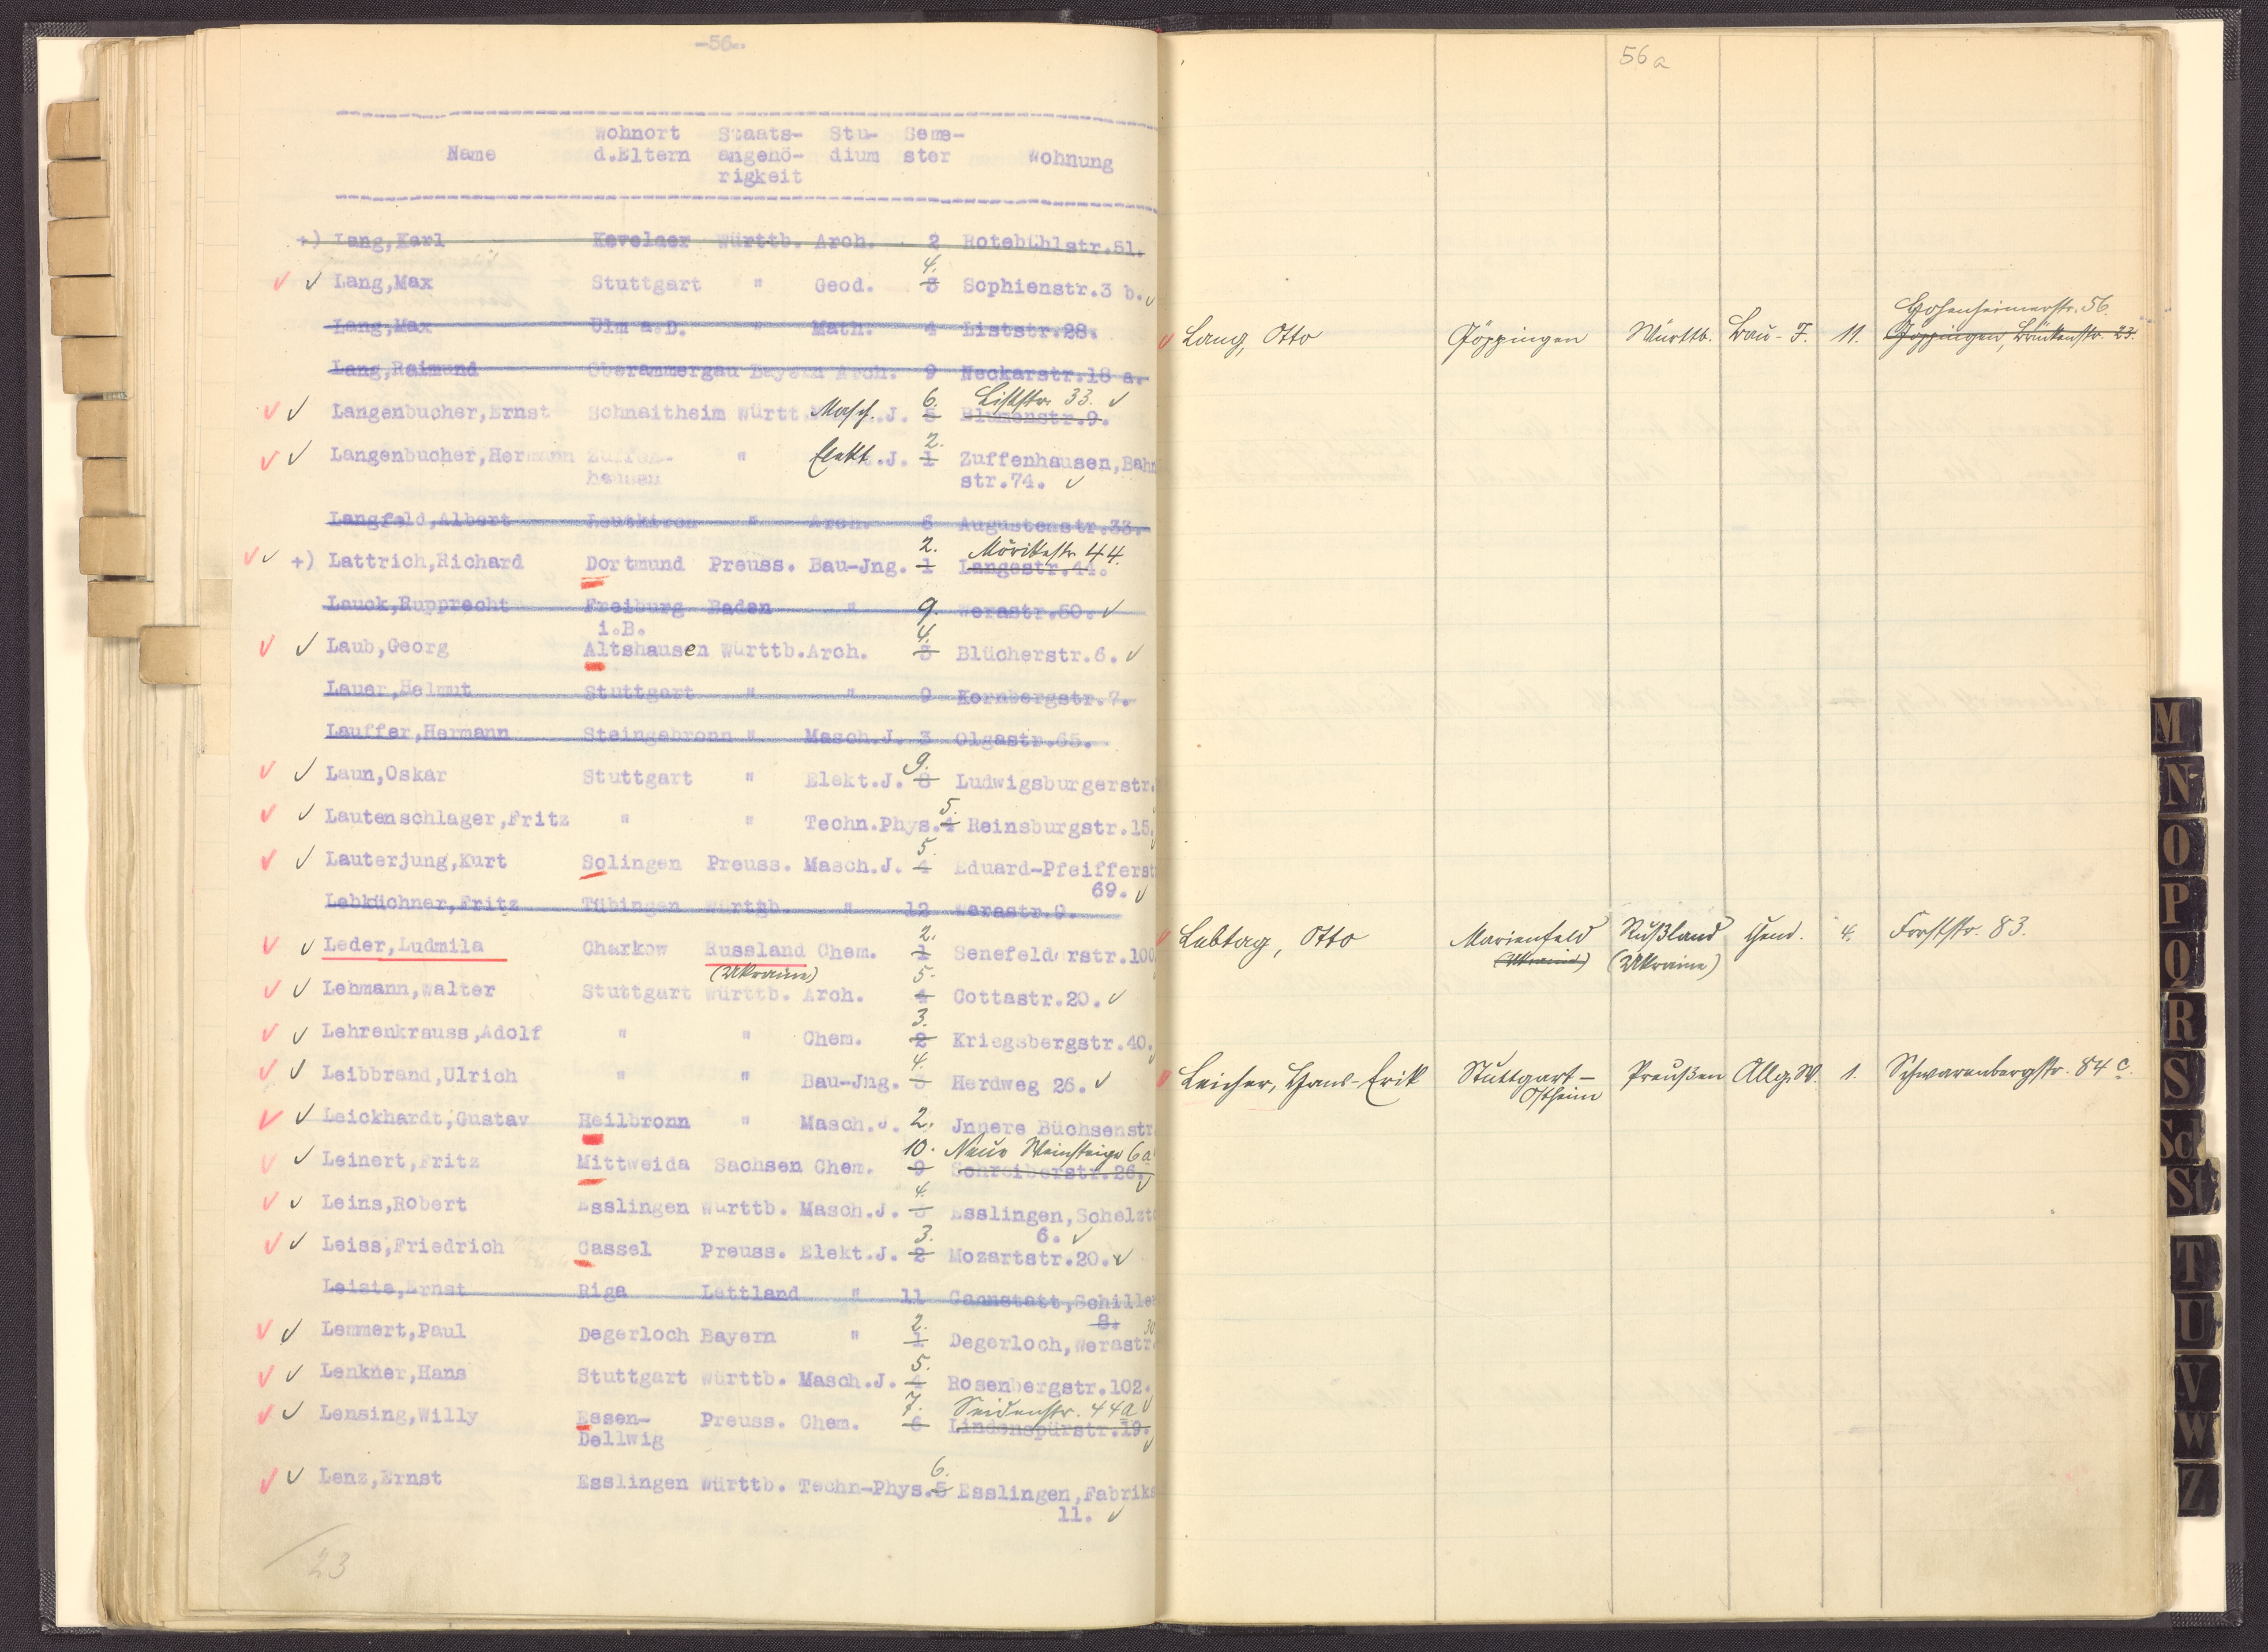 -56-
Wohnort Staats- Stu- Seme-
Name d.Eltern angehö- dium ster Wohnung
rigkeit
+) Lang,Karl Kevelaer Württb. Arch. 2 Rotebühlstr.51.
4.
Lang,Max Stuttgart " Geod. 3 Sophienstr.3 b.
Lang,Max Ulm a.D. " Math. 4 Liststr.28.
Lang,Raimund Oberammergau Bayern Arch. 9 Neckarstr.18 a.
6. Liststr. 33.
Langenbucher,Ernst Schnaitheim Württ. Masch.J. 5 Blumenstr.9.
2.
Langenbucher,Hermann Zuffen- " Elekt.J. 1 Zuffenhausen,Bahn
hausen str.74.
Langfeld,Albert Leutkirch " Arch. 6 Augustenstr.33.
2. Mörikestr. 44.
+) Lattrich,Richard Dortmund Preuss. Bau-Jng. 1 Langestr.44.
Lauck,Rupprecht Freiburg Baden " 9. Werastr.50.
i.B. 4.
Laub,Georg Altshausen Württb.Arch. 3 Blücherstr.6.
Lauer,Helmut Stuttgart " " 9 Kornbergstr.7.
Lauffer,Hermann Steingebronn " Masch.J. 3 Olgastr.65.
9.
Laun,Oskar Stuttgart " Elekt.J. 8 Ludwigsburgerstr.
5.
Lautenschlager,Fritz " " Techn.Phys.4 Reinsburgstr.15.
5.
Lauterjung,Kurt Solingen Preuss. Masch.J. 4 Eduard-Pfeifferst
69.
Lebküchner,Fritz Tübingen Württb. " 12 Werastr.9.
2.
Leder,Ludmila Charkow Russland Chem. 1 Senefelderstr.100
(Ukraine) 5
Lehmann,Walter Stuttgart Württb. Arch. 4 Cottastr.20.
3.
Lehrenkrauss,Adolf " " Chem. 2 Kriegsbergstr.40.
4.
Leibbrand,Ulrich " " Bau-Jng. 3 Herdweg 26.
Leickhardt,Gustav Heilbronn " Masch.J. 2. Jnnere Büchsenstr
10. Neue Weinsteige 6a
Leinert,Fritz Mittweida Sachsen Chem. 9 Schreiberstr.26.
4.
Leins,Robert Esslingen Württb. Masch.J. 3 Esslingen,Schelzto
3. 6.
Leiss,Friedrich Cassel Preuss. Elekt.J. 2 Mozartstr.20.
Leiste,Ernst Riga Lettland " 11 Cannstatt,Schiller
2. 8. 30
Lemmert,Paul Degerloch Bayern " 1 Degerloch,Werastr.
5.
Lenkner,Hans Stuttgart Württb. Masch.J. 4 Rosenbergstr.102.
7. Seidenstr. 44a
Lensing,Willy Essen- Preuss. Chem. 6 Lindenspürstr.19.
Dellwig
6.
Lenz,Ernst Esslingen Württb. Techn-Phys.5 Esslingen,Fabriks
11.
23
56a
Hohenheimerstr. 56.
Lang, Otto Göppingen Württb. Bau-J. 11. Göppingen, Brückenstr. 23.
Lebtag, Otto Marienfeld Rußland Geod. 4. Forststr. 83.
(Ukraine) (Ukraine)
Leicher, Hans-Erik Stuttgart- Preußen Allg.W. 1. Schwarenbergstr. 84 c.
Ostheim
M
N
O
P
Q
R
S
Sch
St
T
U
V
W
Z